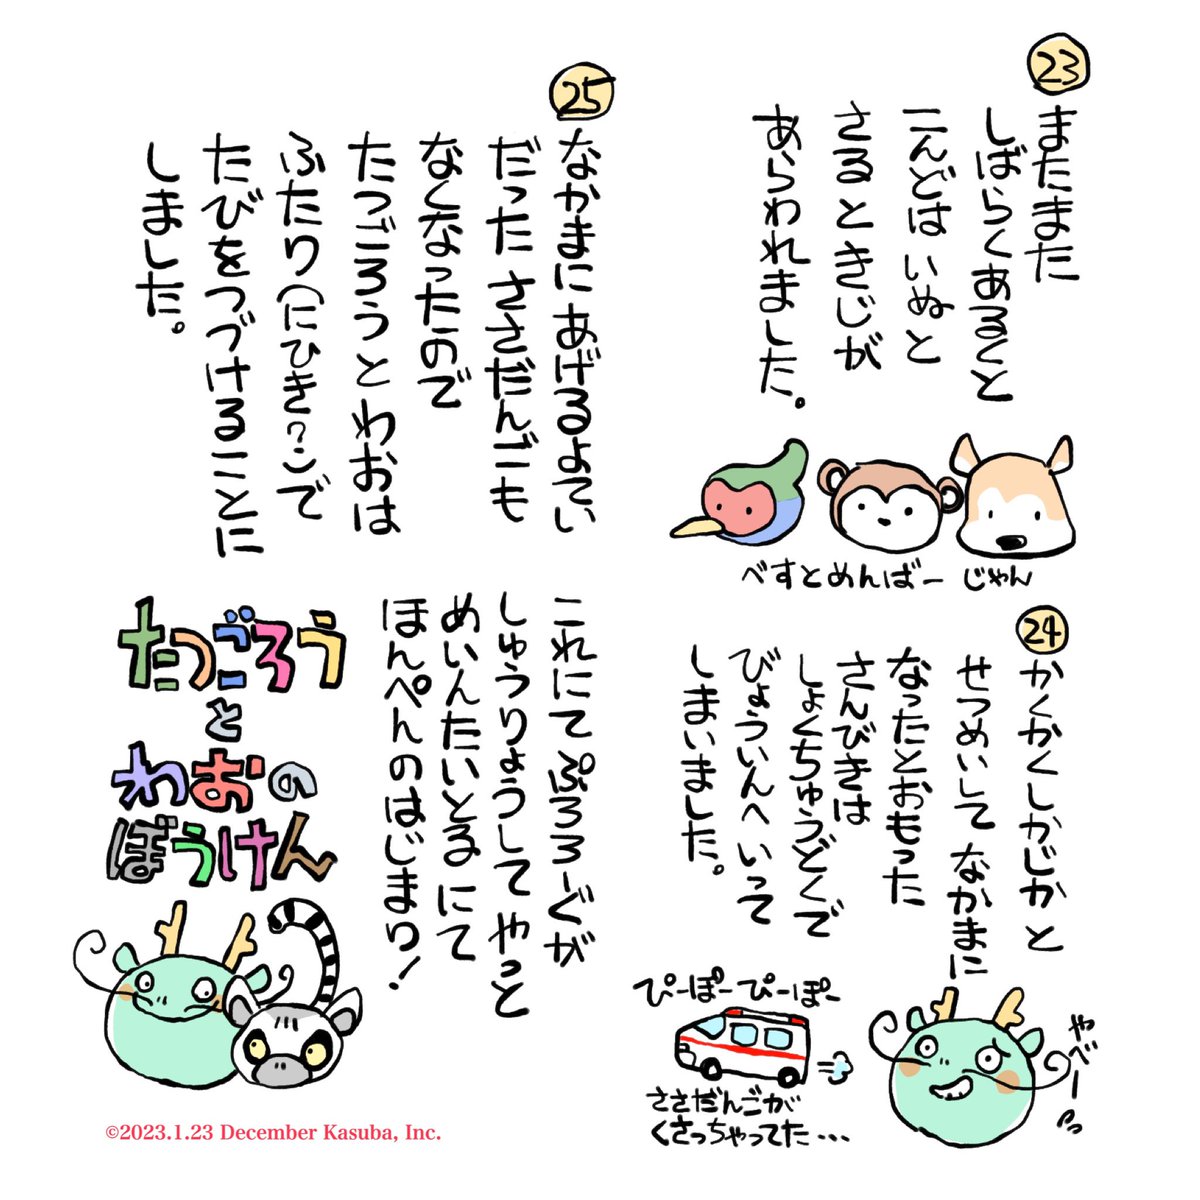 23
またまた
しばらくあるくと
こんどは いぬと
さる ときじが
あらわれました。
べすとめんばー じゃん
24
かくかくしかじかと
せつめいして なかまに
なったとおもった
さんびきは
しょくちゅうどくで
びょういんへ いって
しまいました。
やべーっ
ぴーぽーぴーぽー
ささだんごが
くさっちゃってた・・・
25
なかまに あげるよてい
だった ささだんごも
なくなったので
たつごろうと わおは
ふたり(にひき?)で
たびをつづけることに
しました。
これにて ぷろろーぐが
しゅうりょうして やっと
めいんたいとるにて
ほんぺんのはじまり!
たつごろう
と
わおの
ぼうけん
©2023.1.23 December Kasuba, Inc.